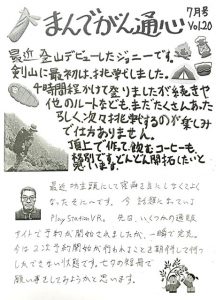 まんでがん通心
7月号
Vol.20
最近登山デビューしたジョニーです。
剣山に最初は挑戦しました。
4時間程かけて登りましたが絶景や
他のルートなども、まだたくさんあった
らしく次々挑戦するのが楽しみ
で仕方ありません。
頂上で作って飲むコーヒーも
格別です。どんどん開拓したいと
思います。
最近坊主頭にして寝癖を気にしなくてよく
なったそにへです。今話題になっている
PlayStationVR。先日、いくつかの通販
サイトで予約が開始されましたが、一瞬で完売。
今は2次予約開始が行われることを期待して何っ
しかできない状態です。七夕の短冊で
願い事をしてみようかと思います。